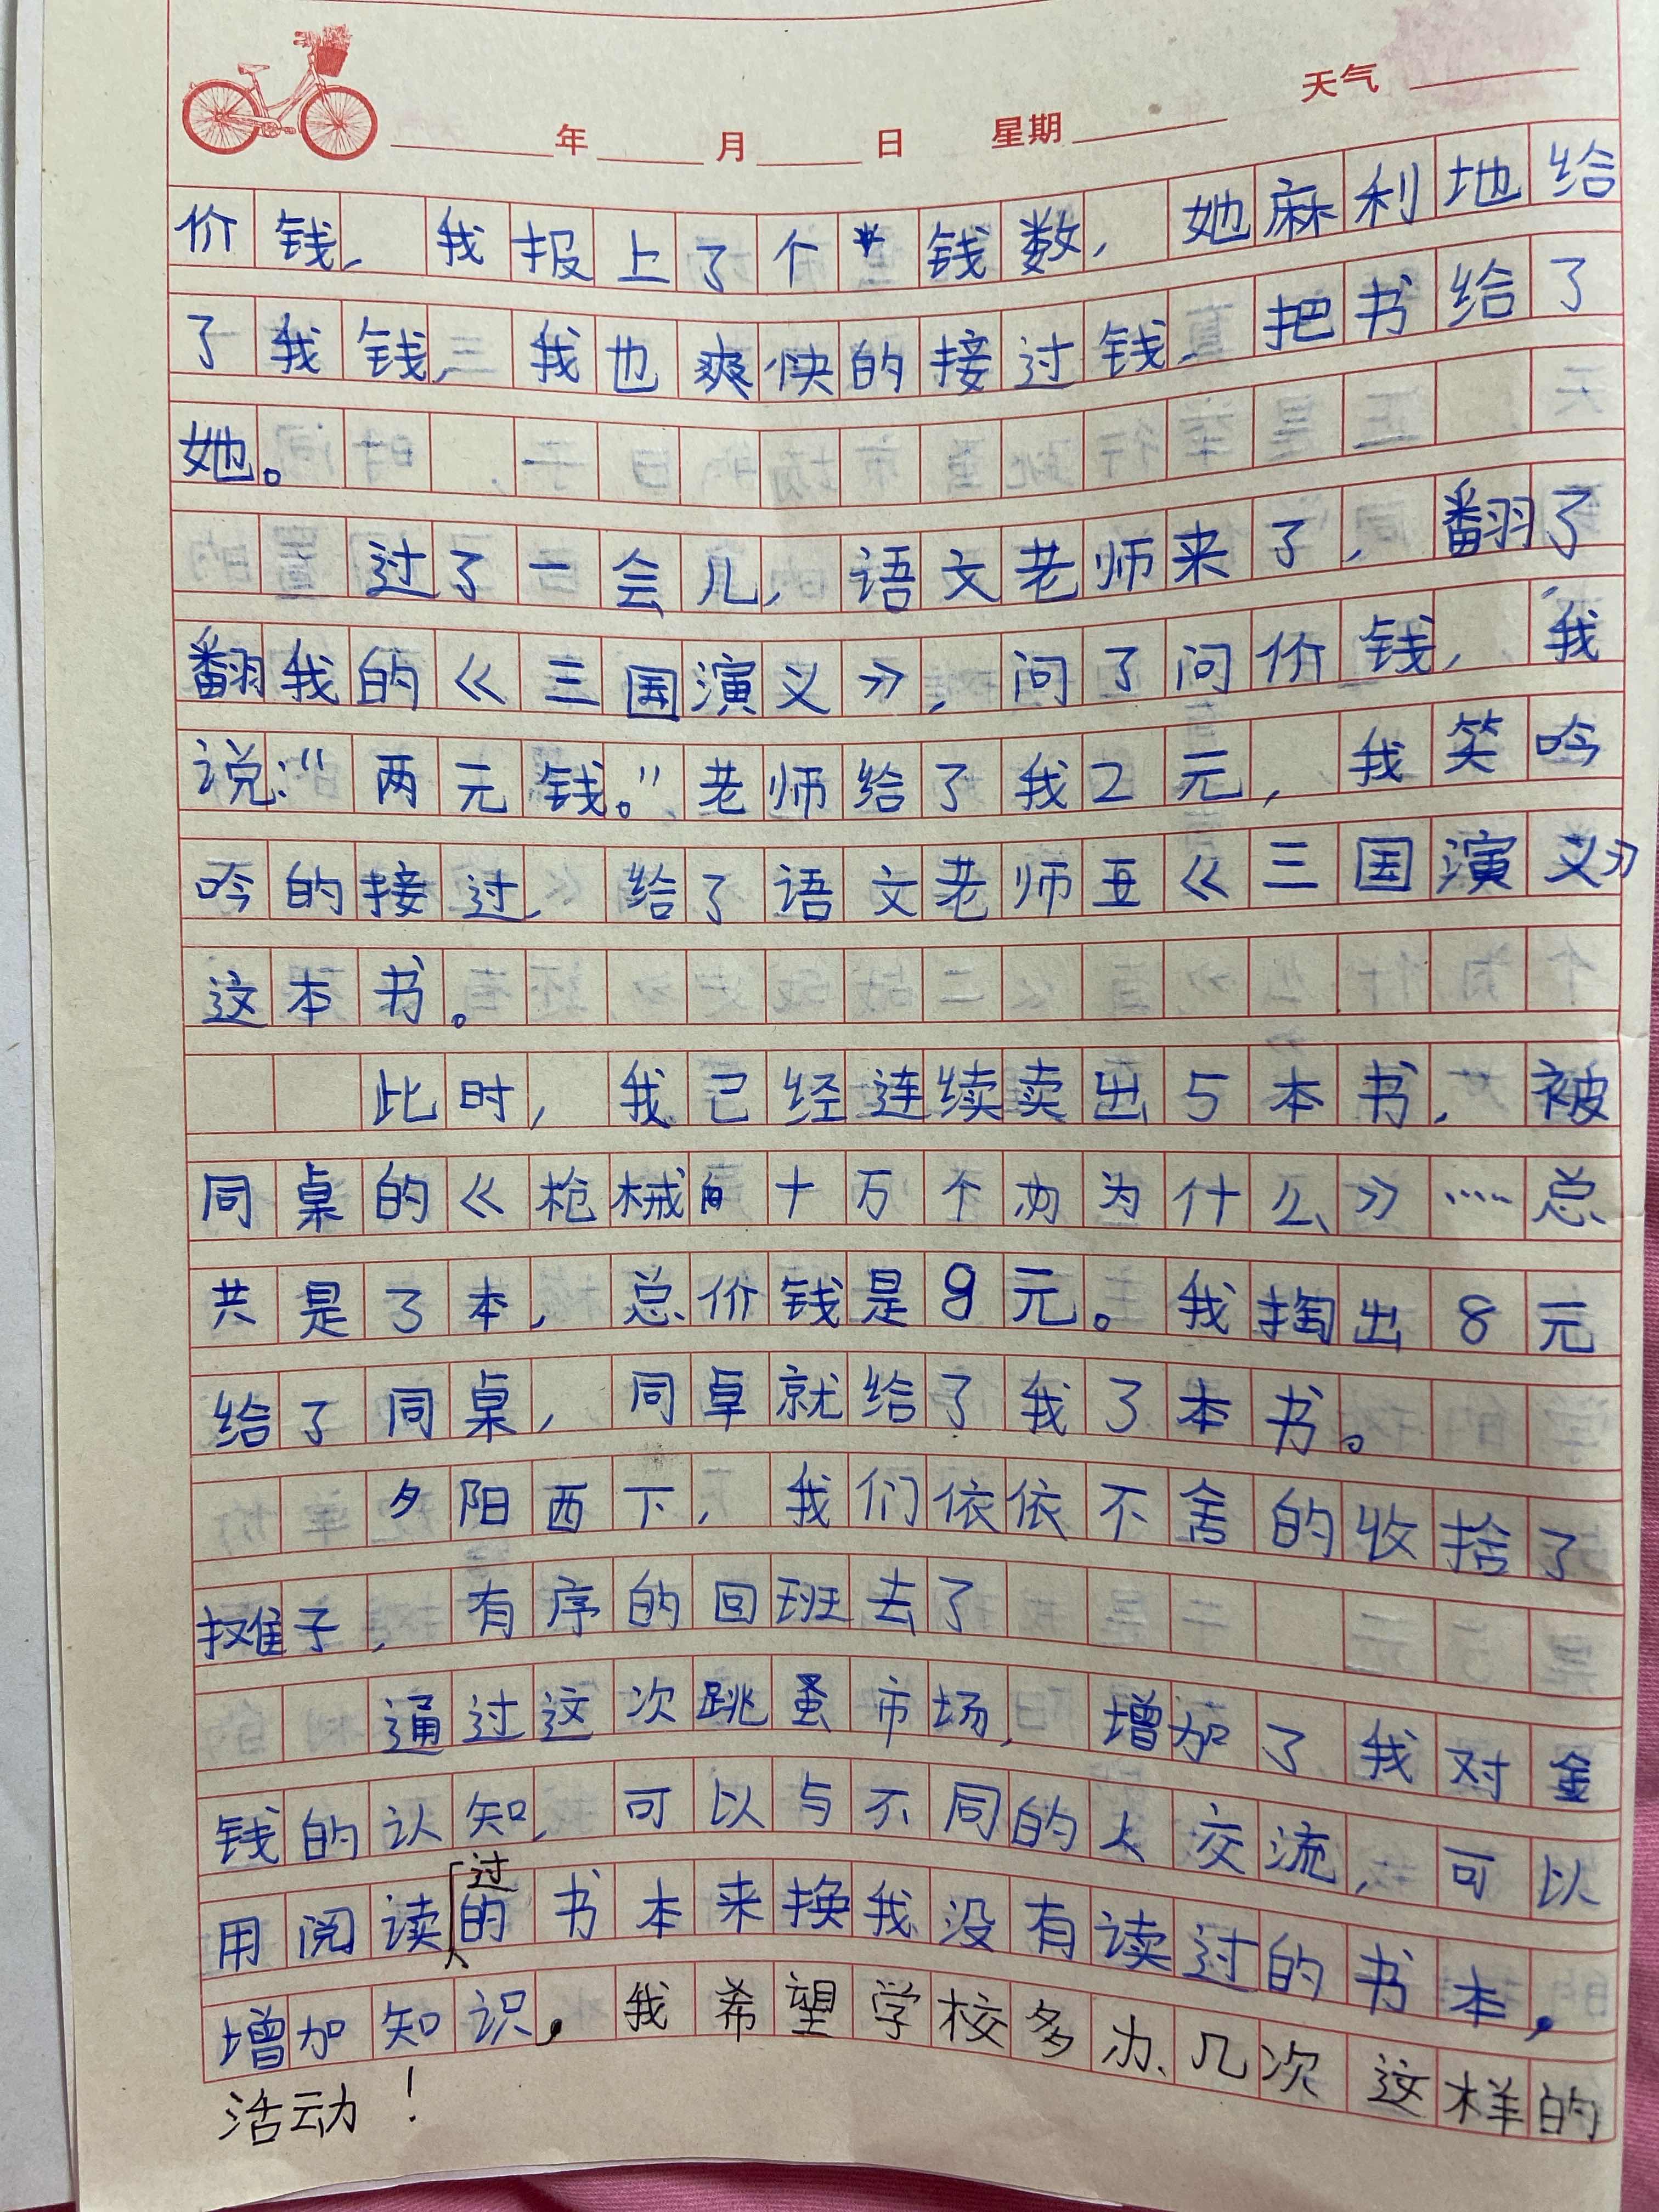 天气
年 月 日 星期
价钱，我报上了个钱数，她麻利地给
了我钱，我也爽快的接过钱，把书给了
她。
过了一会儿，语文老师来了，翻了
翻我的《三国演义》，问了问价钱，我
说：“两元钱。”老师给了我2元，我笑吟
吟的接过，给了语文老师《三国演义》
这本书。
此时，我已经连续卖出5本书，被
同桌的《枪械的十万个为什么》……总
共是3本，总价钱是9元。我掏出8元
给了同桌，同卓就给了我3本书。
夕阳西下，我们依依不舍的收捨了
摊子，有序的回班去了
通过这次跳蚤市场，增加了我对金
钱的认知，可以与不同的人交流，可以
用阅读过的书本来换我没有读过的书本，
增加知识，我希望学校多办几次这样的
活动！